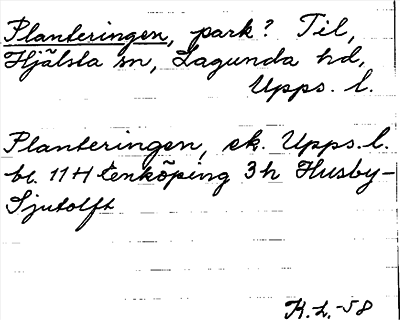 Planteringen, park? Til,
Hjälsta sn, Lagunda hd,
Upps. l.
Planteringen, ek. Upps. l.
bl. 11 H Enköping 3h Husby-
Sjutolft
H. L. -58